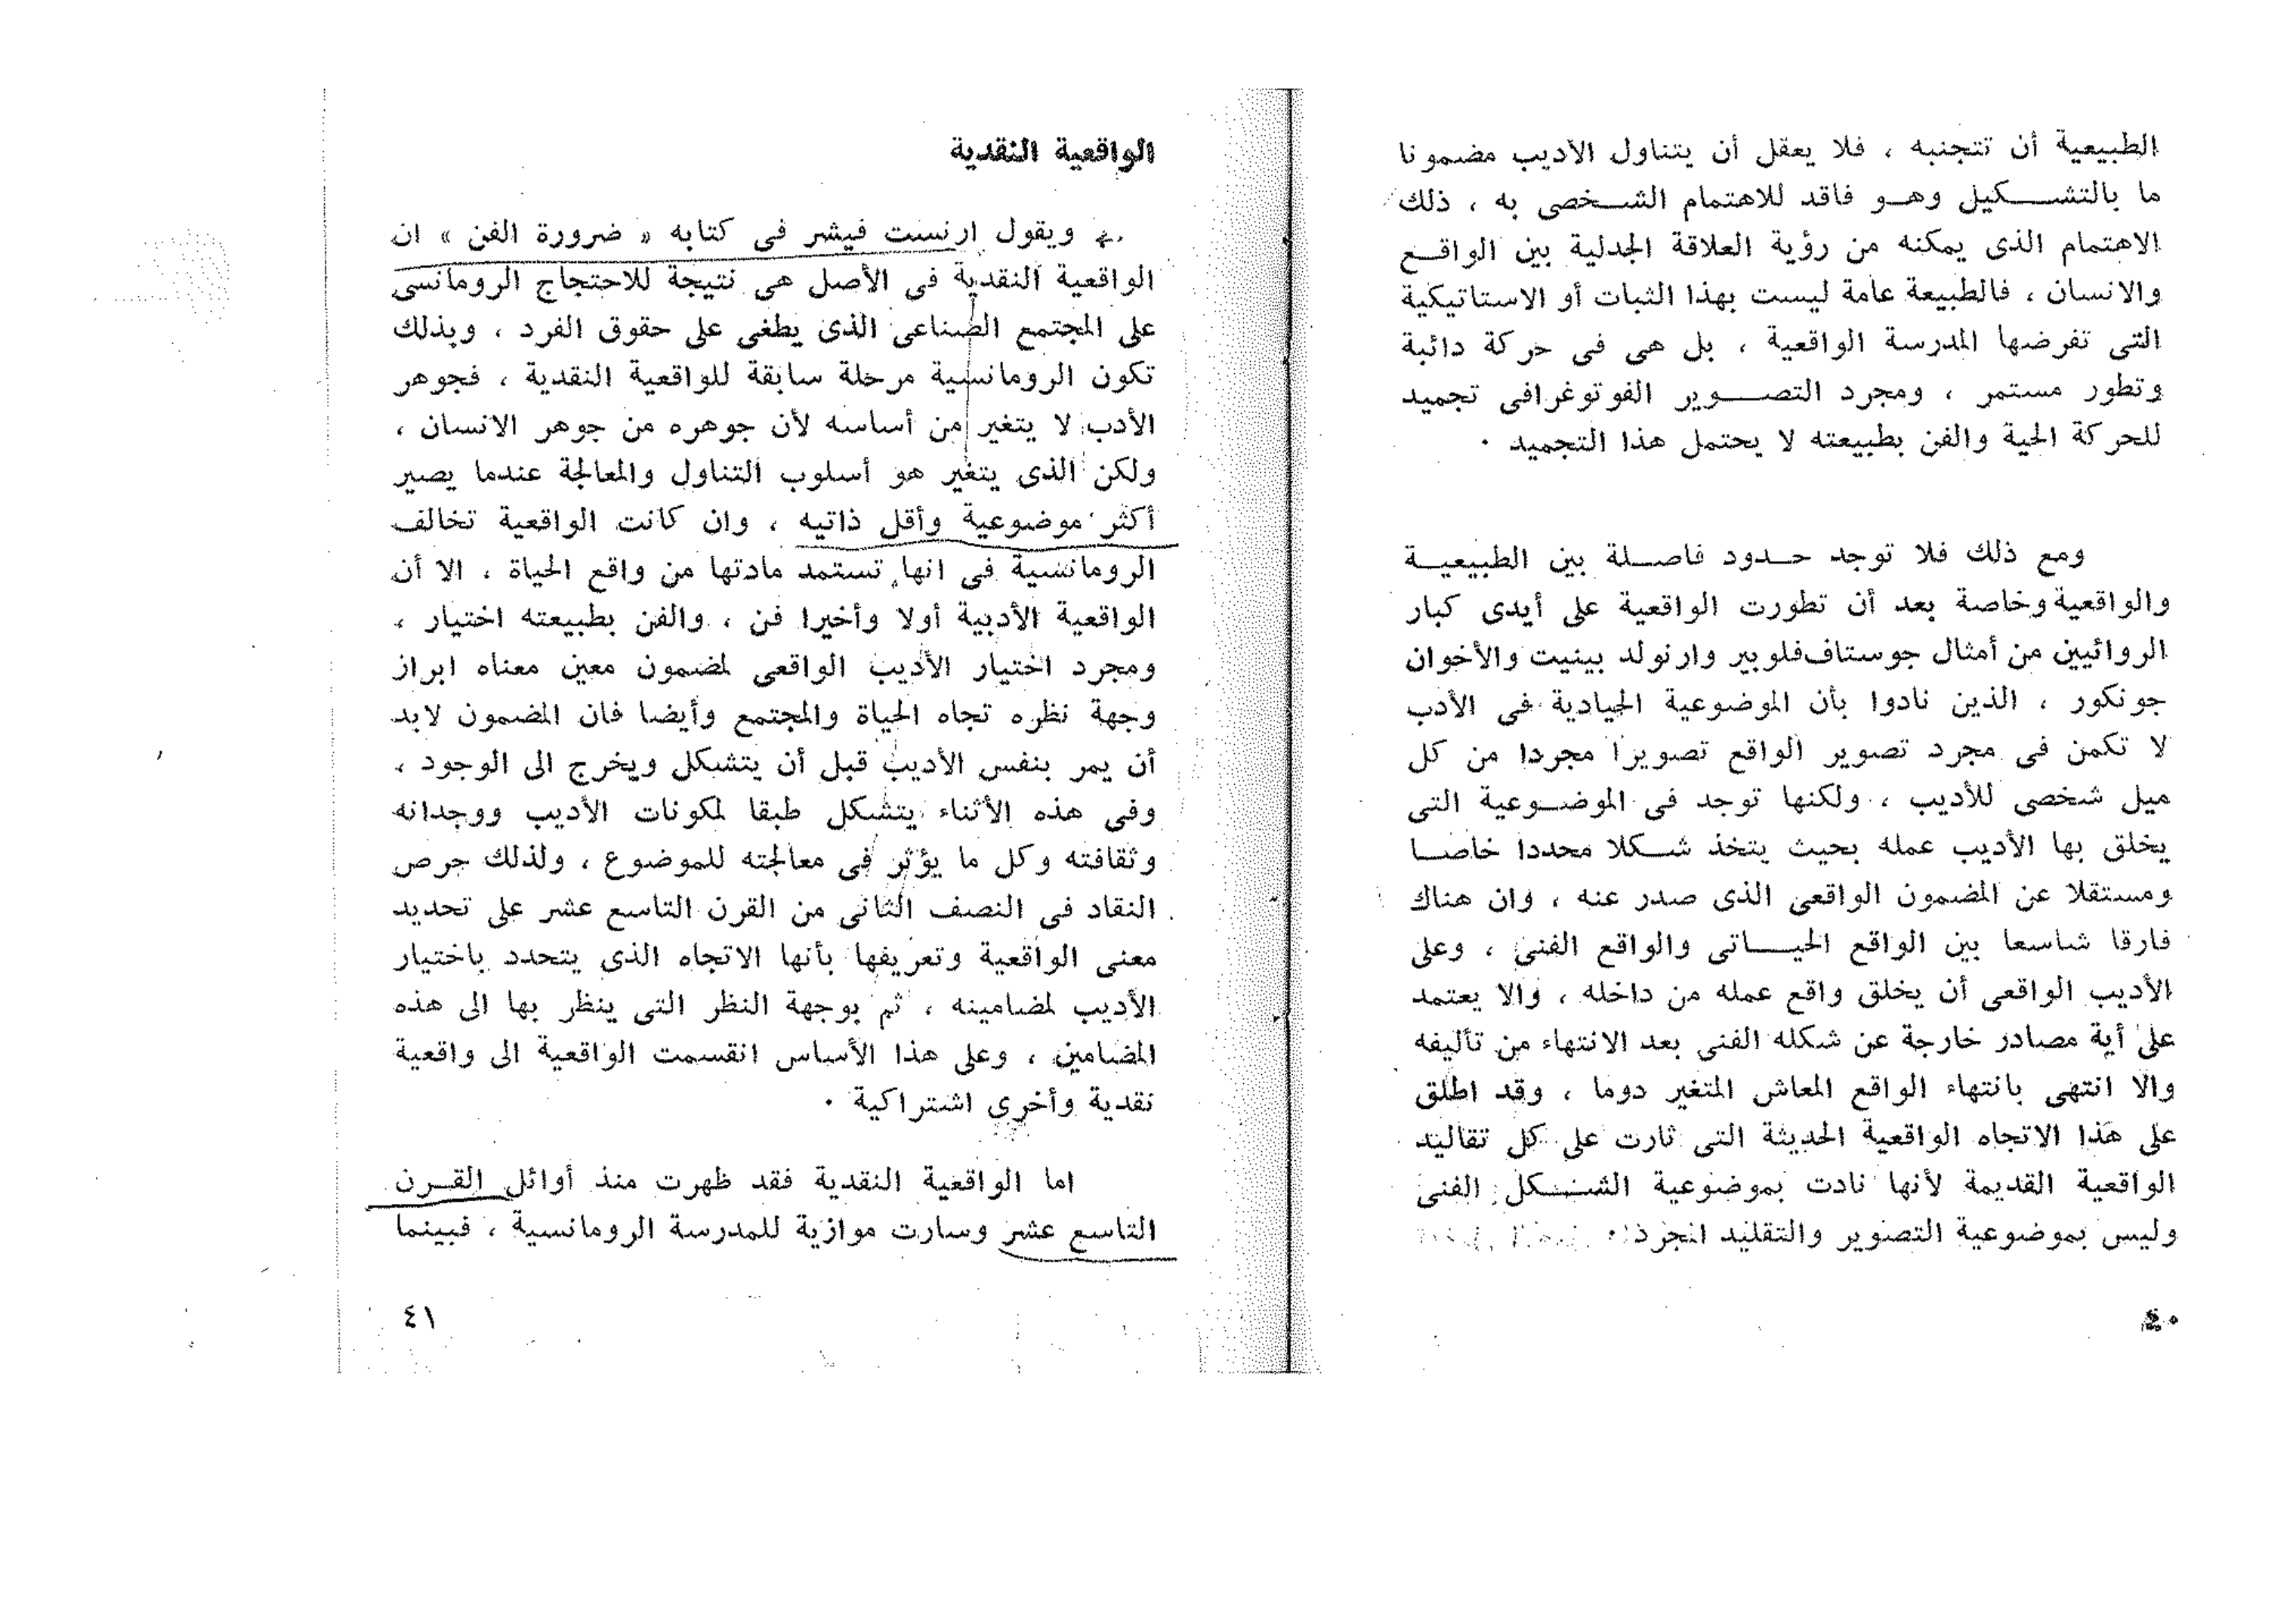 الطبيعية أن تتجنبه ، فلا يعقل أن يتناول الأديب مضمونا
ما بالتشكيل وهو فاقد للاهتمام الشخصى به ، ذلك
الاهتمام الذى يمكنه من رؤية العلاقة الجدلية بين الواقع
والانسان ، فالطبيعة عامة ليست بهذا الثبات أو الاستاتيكية
التى تفرضها المدرسة الواقعية ، بل هى فى حركة دائبة
وتطور مستمر ، ومجرد التصوير الفوتوغرافى تجميد
للحركة الحية والفن بطبيعته لا يحتمل هذا التجميد .
ومع ذلك فلا توجد حدود فاصلة بين الطبيعية
والواقعية وخاصة بعد أن تطورت الواقعية على أيدى كبار
الروائيين من أمثال جوستاف فلوبير وارنولد بينيت والأخوان
جونكور ، الذين نادوا بأن الموضوعية الحيادية فى الأدب
لا تكمن فى مجرد تصوير الواقع تصويرا مجردا من كل
ميل شخصى للأديب ، ولكنها توجد فى الموضوعية التى
يخلق بها الأديب عمله بحيث يتخذ شكلا محددا خاصا
ومستقلا عن المضمون الواقعى الذى صدر عنه ، وان هناك
فارقا شاسعا بين الواقع الحياتى والواقع الفنى ، وعلى
الأديب الواقعى أن يخلق واقع عمله من داخله ، والا يعتمد
على أية مصادر خارجة عن شكله الفنى بعد الانتهاء من تأليفه
والا انتهى بانتهاء الواقع المعاش المتغير دوما ، وقد اطلق
على هذا الاتجاه الواقعية الحديثة التى ثارت على كل تقاليد
الواقعية القديمة لأنها نادت بموضوعية الشكل الفنى
وليس بموضوعية التصوير والتقليد المجرد .
٤٠
الواقعية النقدية
ويقول ارنست فيشر فى كتابه « ضرورة الفن » ان
الواقعية النقدية فى الأصل هى نتيجة للاحتجاج الرومانسى
على المجتمع الصناعى الذى يطغى على حقوق الفرد ، وبذلك
تكون الرومانسية مرحلة سابقة للواقعية النقدية ، فجوهر
الأدب لا يتغير من أساسه لأن جوهره من جوهر الانسان ،
ولكن الذى يتغير هو أسلوب التناول والمعالجة عندما يصير
أكثر موضوعية وأقل ذاتيه ، وان كانت الواقعية تخالف
الرومانسية فى انها تستمد مادتها من واقع الحياة ، الا أن
الواقعية الأدبية أولا وأخيرا فن ، والفن بطبيعته اختيار ،
ومجرد اختيار الأديب الواقعى لمضمون معين معناه ابراز
وجهة نظره تجاه الحياة والمجتمع وأيضا فان المضمون لابد
أن يمر بنفس الأديب قبل أن يتشكل ويخرج الى الوجود ،
وفى هذه الأثناء يتشكل طبقا لمكونات الأديب ووجدانه
وثقافته وكل ما يؤثر فى معالجته للموضوع ، ولذلك حرص
النقاد فى النصف الثانى من القرن التاسع عشر على تحديد
معنى الواقعية وتعريفها بأنها الاتجاه الذى يتحدد باختيار
الأديب لمضامينه ، ثم بوجهة النظر التى ينظر بها الى هذه
المضامين ، وعلى هذا الأساس انقسمت الواقعية الى واقعية
نقدية وأخرى اشتراكية .
اما الواقعية النقدية فقد ظهرت منذ أوائل القرن
التاسع عشر وسارت موازية للمدرسة الرومانسية ، فبينما
٤١